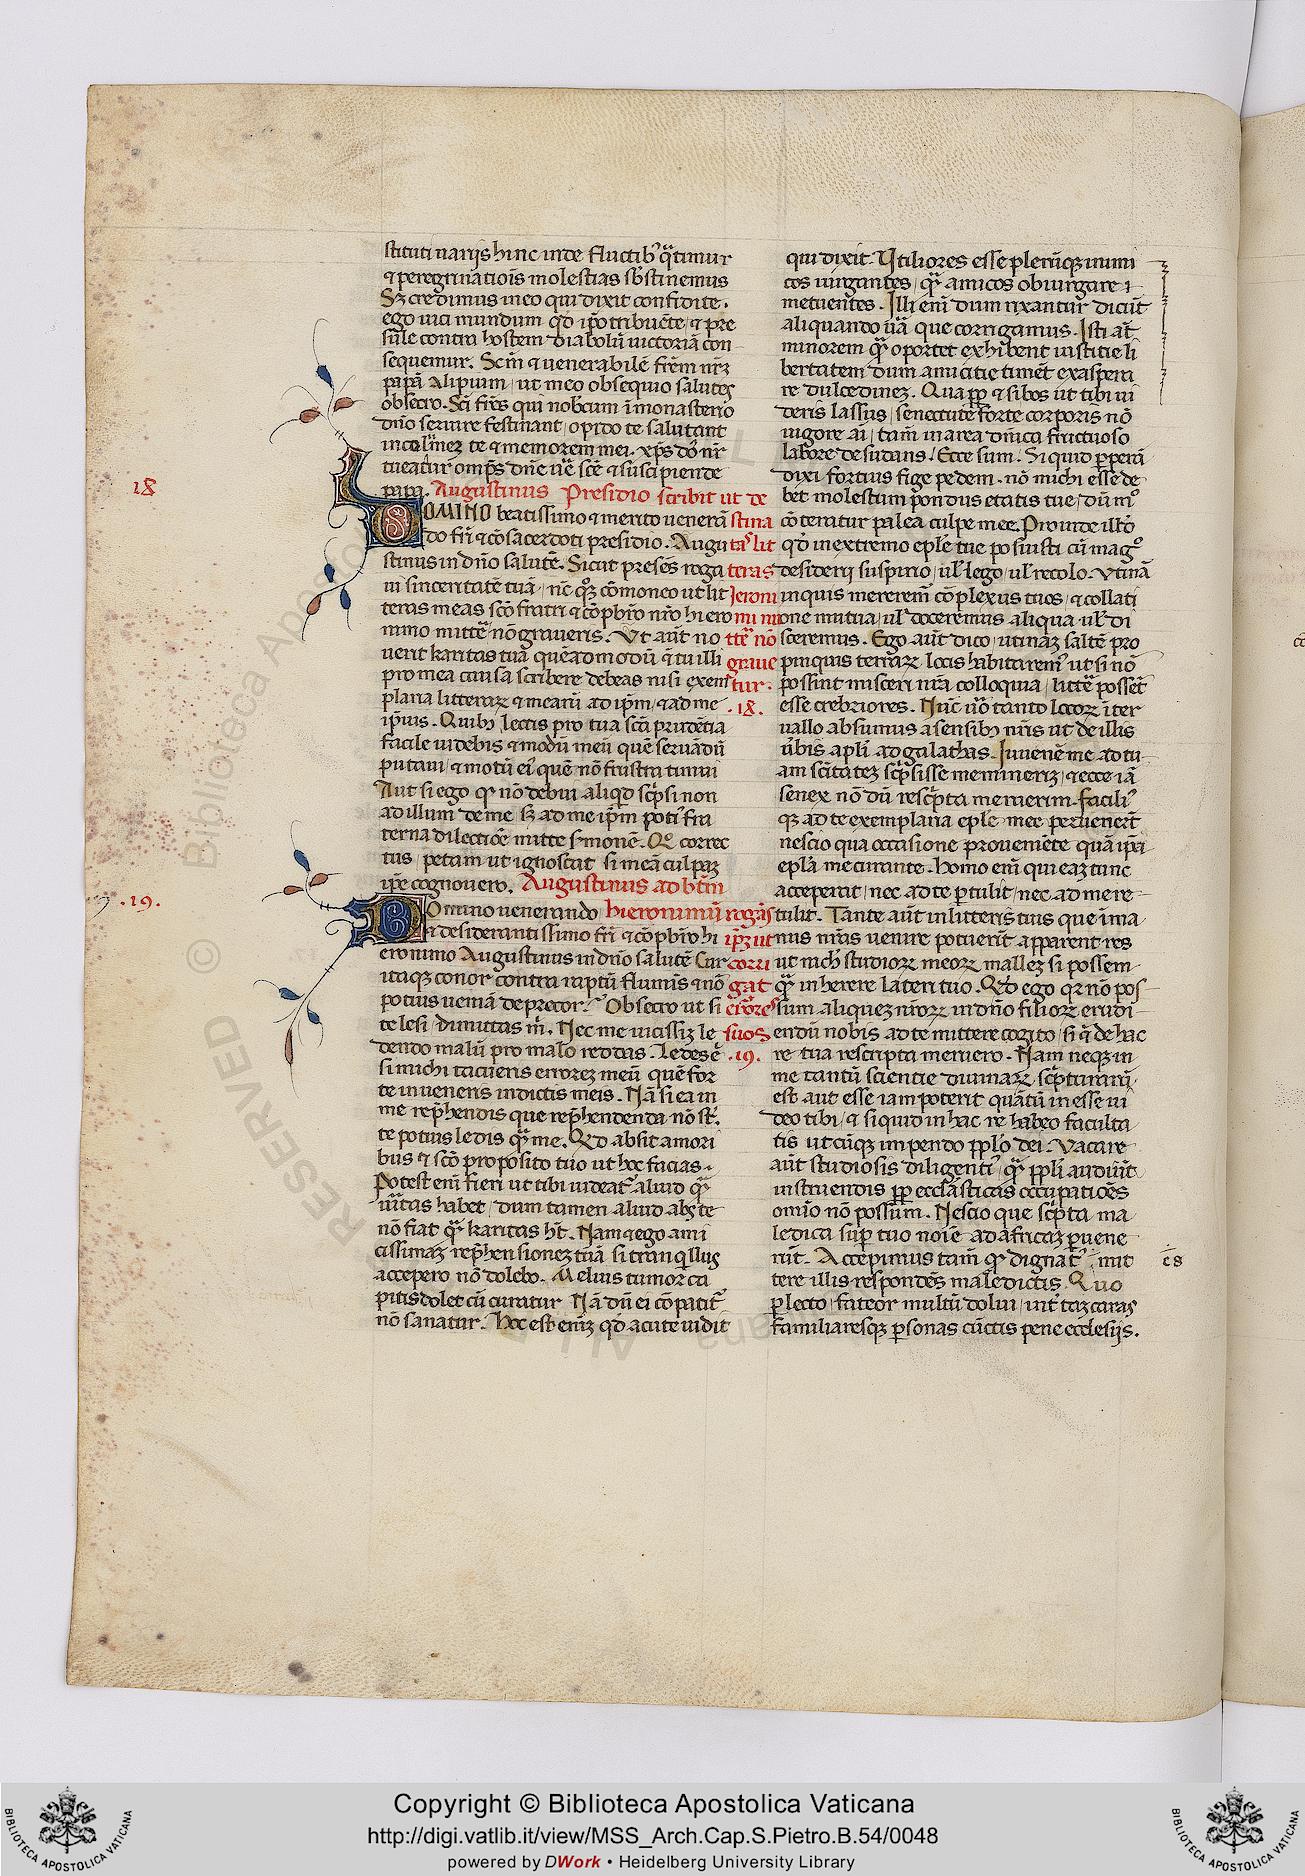 stituti uarijs hinc inde fluctib' q̄timur
⁊ peregrinatiōis molestias sb̄stinemus
Sꝫ credimus in eo qui dixit confidite.
ego uici mundum qd̄ ip̄o tribuēte, ⁊ pre
sule contra hostem diabolū uictoriā con
sequemur. Scm̄ ⁊ uenerabilē frēm nr̄ꝫ
papā Alipium, ut meo obsequio salutes
obsecro. Sc̄i fr̄es qui nob̄cum ī monasterio
dn̄o seruire festinant, oppido te salutant
incolumeꝫ te ⁊ memorem mei. xp̄s do' nr̄
tueatur omp̄s dn̄e uē scē ⁊ suscipiende
papa. Augustinus Presidio scribit ut de
18
DOMINO beatissimo ⁊ merito uenerā stina
do fr̄i ⁊ cōsacerdoti presidio. Augu tas lit
stinus in dn̄o salutē. Sicut presēs roga teras
ui sinceritatē tuā, nc̄ qꝫ cōmoneo ut lit Jeroni
teras meas scō fratri ⁊ cōpbr̄o nr̄o hiero mi mi
nimo mittē nō graueris. Ut aūt no ttē nō
uerit karitas tua quēadmodū ⁊ tu illi graue
pro mea causa scribere debeas misi exem tur.
plaria litteraꝝ ⁊ mearū ad ip̄m, ⁊ ad me .18.
ip̄ius. Quibꝫ lectis pro tua scā prudētia
facile uidebis ⁊ modū meū quē seruādū
putaui, ⁊ motū ei' quē nō frustra timui
Aut si ego qr nō debui aliqd scp̄si non
ad illum de me sꝫ ad me ip̄m poti' fra
terna dilectiōe mitte smonē. Qo correc
tus petam ut ignoscat si meā culpaꝫ
ip̄e cognouero. Augustinus ad btm̄
.19.
Domino uenerando hieronimū rogās
⁊ desiderantissimo fr̄i ⁊ cōpbr̄o hi ip̄ꝫ ut
eronimo Augustinus in dn̄o salutē Cur corri
itaqꝫ conor contra raptū flumīs ⁊ nō gat
potius ueniā deprecor. Obsecro ut si errores
te lesi dimittas m̄. Nec me uicissiꝫ le suos
dendo malū pro malo reddas. Ledes ē .19.
si michi tacueris erroreꝫ meū quē for
te inueneris in dictis meis. Nā si ea in
me rep̄hendis que rep̄hendenda nō st̄.
te potius ledis qm̄ me. Qd absit amori
bus ⁊ scō proposito tuo ut hoc facias.
Potest enī fieri ut tibi uideat' aliud qm̄
uītas habet, dum tamen aliud abs te
nō fiat qm̄ karitas ht̄. Nam ⁊ ego ami
cissimaꝫ rep̄hensioneꝫ tuā si tranqllus
accepero nō dolebo. Melius tumor ca
pitis dolet cū curatur Nā dū ei cōpatit'
nō sanatur. Hoc est eniꝫ qd̄ acute uidit
qui dixit. Utiliores esse plerūqꝫ inimi
cos iurgantes, qm̄ amicos obiurgare
metuentes. Illi enī dum rixantur dicūt
aliquando uā que corrigamus. Isti aūt
minorem qm̄ oportet exhibent iustitie li
bertatem dum amicitie timēt exaspera
re dulcedineꝫ. Quapp ⁊ si bos ut tibi ui
deris lassus, senectute forte corporis nō
uigore ai, tam̄ in area dn̄ica fructuoso
labore desudans, Ecce sum. Si quid perperā
dixi fortius fige pedem. nō michi esse de
bet molestum pondus etatis tue, dū mo
cōteratur palea culpe mee. Proinde illd
qd̄ in extremo eple tue posuisti cū magº
desiderij suspirio, ul' lego, ul' recolo. Utinā
inquis mereremʼ cōplexus tuos, ⁊ collati
one mutua, ul' doceremus aliqua ul' di
sceremus. Ego aūt dico, utinaꝫ saltē pro
pinquis terraꝝ locis habitarem' ut si nō
possint misceri nr̄a colloquia, littē possēt
esse crebriores. Nūc uō tanto locoꝝ iter
uallo absumus a sensibꝫ nr̄is ut de illis
ūbis apl'i ad galathas. Iuuenē me ad tu
am scītateꝫ scp̄sisse meminerī, ⁊ ecce iā
senex nō dū rescp̄ta meruerim. facili'
qꝫ ad te exemplaria eple mee peruenerūt
nescio qua occasione proueniēte quā ip̄a
epl̄a me curante. Homo enī qui eaꝫ tunc
acceperat, nec ad te ptulit, nec ad me re
tulit. Tante aūt in litteris tuis que ī ma
nus nr̄as uenire potuerūt apparent res
ut nich' studioꝝ meoꝝ malleꝫ si possem
qm̄ inherere lateri tuo. Qd̄ ego qr nō pos
sum aliqueꝫ nr̄oꝝ in dn̄o filioꝝ erudi
endū nobis ad te mittere cogito, si q̄ de hac
re tua rescripta meruero. Nam neqꝫ in
me tantū scientie diuinaꝝ scp̄turarū,
est aut esse iam poterit quātū inesse ui
deo tibi, ⁊ si quid in hac re habeo faculta
tis utcūqꝫ impendo pp̄l'o dei. Vacare
aūt studiosis diligenti' qm̄ ppl'i audiūt
instruendis pp ecclāsticas occupatiōes
omīo nō possum. Nescio que scp̄ta ma
ledica sup tuo noīe ad africaꝫ puene
rūt. Accepimus tam̄ qr dignat' mit es
tere illis respondēs maledictis. Quo
plecto, fateor multū dolui, int' taꝫ caras
familiaresqꝫ psonas cūctis pene ecclesijs.
Copyright © Biblioteca Apostolica Vaticana
http://digi.vatlib.it/view/MSS_Arch.Cap.S.Pietro.B.54/0048
powered by DWork • Heidelberg University Library
BIBLIOTECA APOSTOLICA VATICANA
BIBLIOTECA APOSTOLICA VATICANA